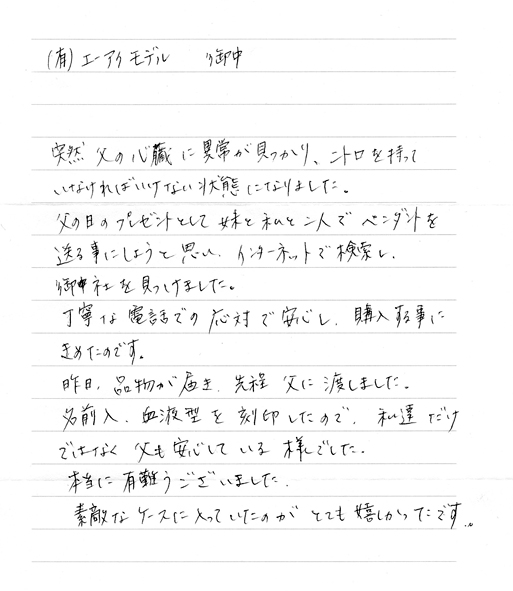 (有)エーアイモデル 御中
突然 父の心臓に異常が見つかり、ニトロを持って
いなければいけない状態になりました。
父の日のプレゼントとして妹と私と二人でペンダントを
送る事にしようと思い、インターネットで検索し、
御中社を見つけました。
丁寧な電話での応対で安心し、購入する事に
きめたのです。
昨日、品物が届き、先程 父に渡しました。
名前入、血液型を刻印したので、私達だけ
ではなく父も安心している様でした。
本当に有難うございました。
素敵なケースに入っていたのがとても嬉しかったです。